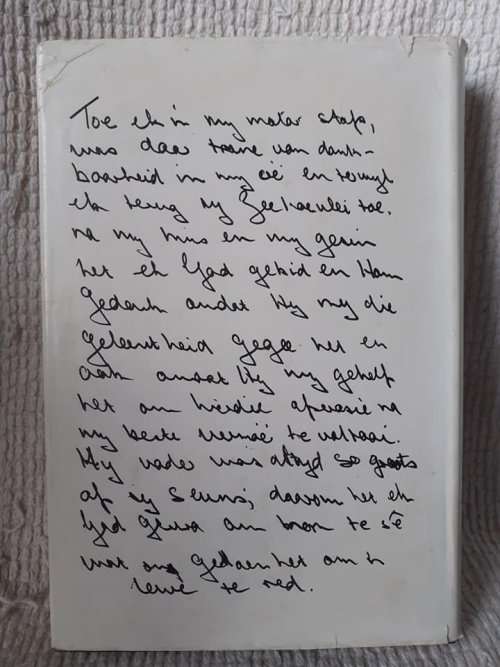 Toe ek in my motor stap,
was daar trane van dank-
baarheid in my oë en terwyl
ek terug ry Zeekoevlei toe,
na my huis en my gesin
het ek God gebid en Hom
gedank omdat Hy my die
geleentheid gegee het en
ook omdat Hy my gehelp
het om hierdie operasie na
my beste vermoë te voltooi.
My vader was altyd so groots
op sy seuns, daarom het ek
God gevra om hom te sê
wat ons gedoen het om 'n
lewe te red.